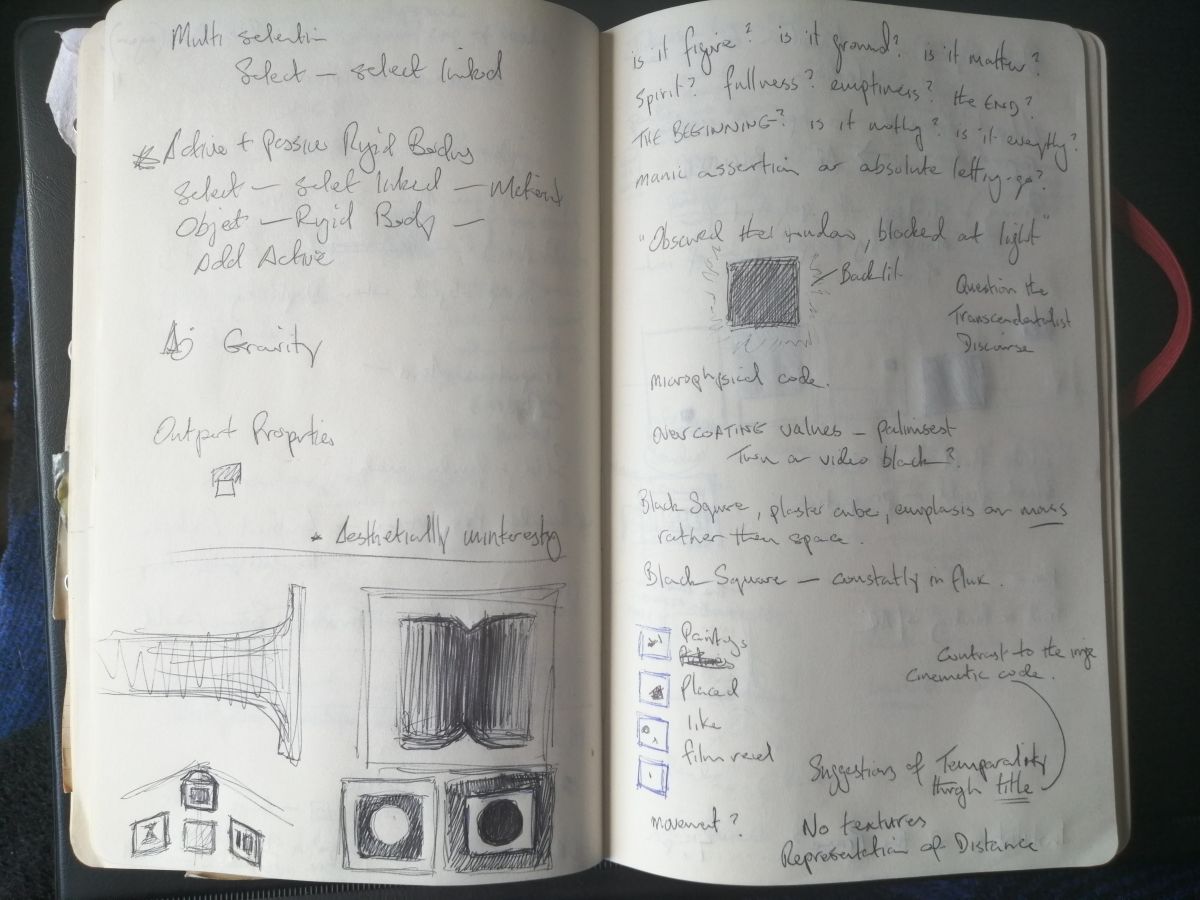 Multi selection
Select — select linked
Active + Passive Rigid Bodies
Select — select linked —
Object — Rigid Body —
Add Active
Gravity
Output Properties
Aesthetically uninteresting
is it figure? is it ground? is it matter?
Spirit? fullness? emptiness? the END?
THE BEGINNING? is it nothing? is it everything?
manic assertion or absolute letting-go?
"Obscured the window, blocked out light"
Backlit.
Question the
Transcendentalist
Discourse
microphysical code.
OVERCOATING values — palimsest
Turn on video black?
Black Square, plaster cube, emphasis on mass
rather then space.
Black Square — constatly in flux.
Paintings
placed
like
film reel
Contrast to the image
cinematic code.
Suggestions of Temporality
through title
movement?
No textures
Representation of Distance